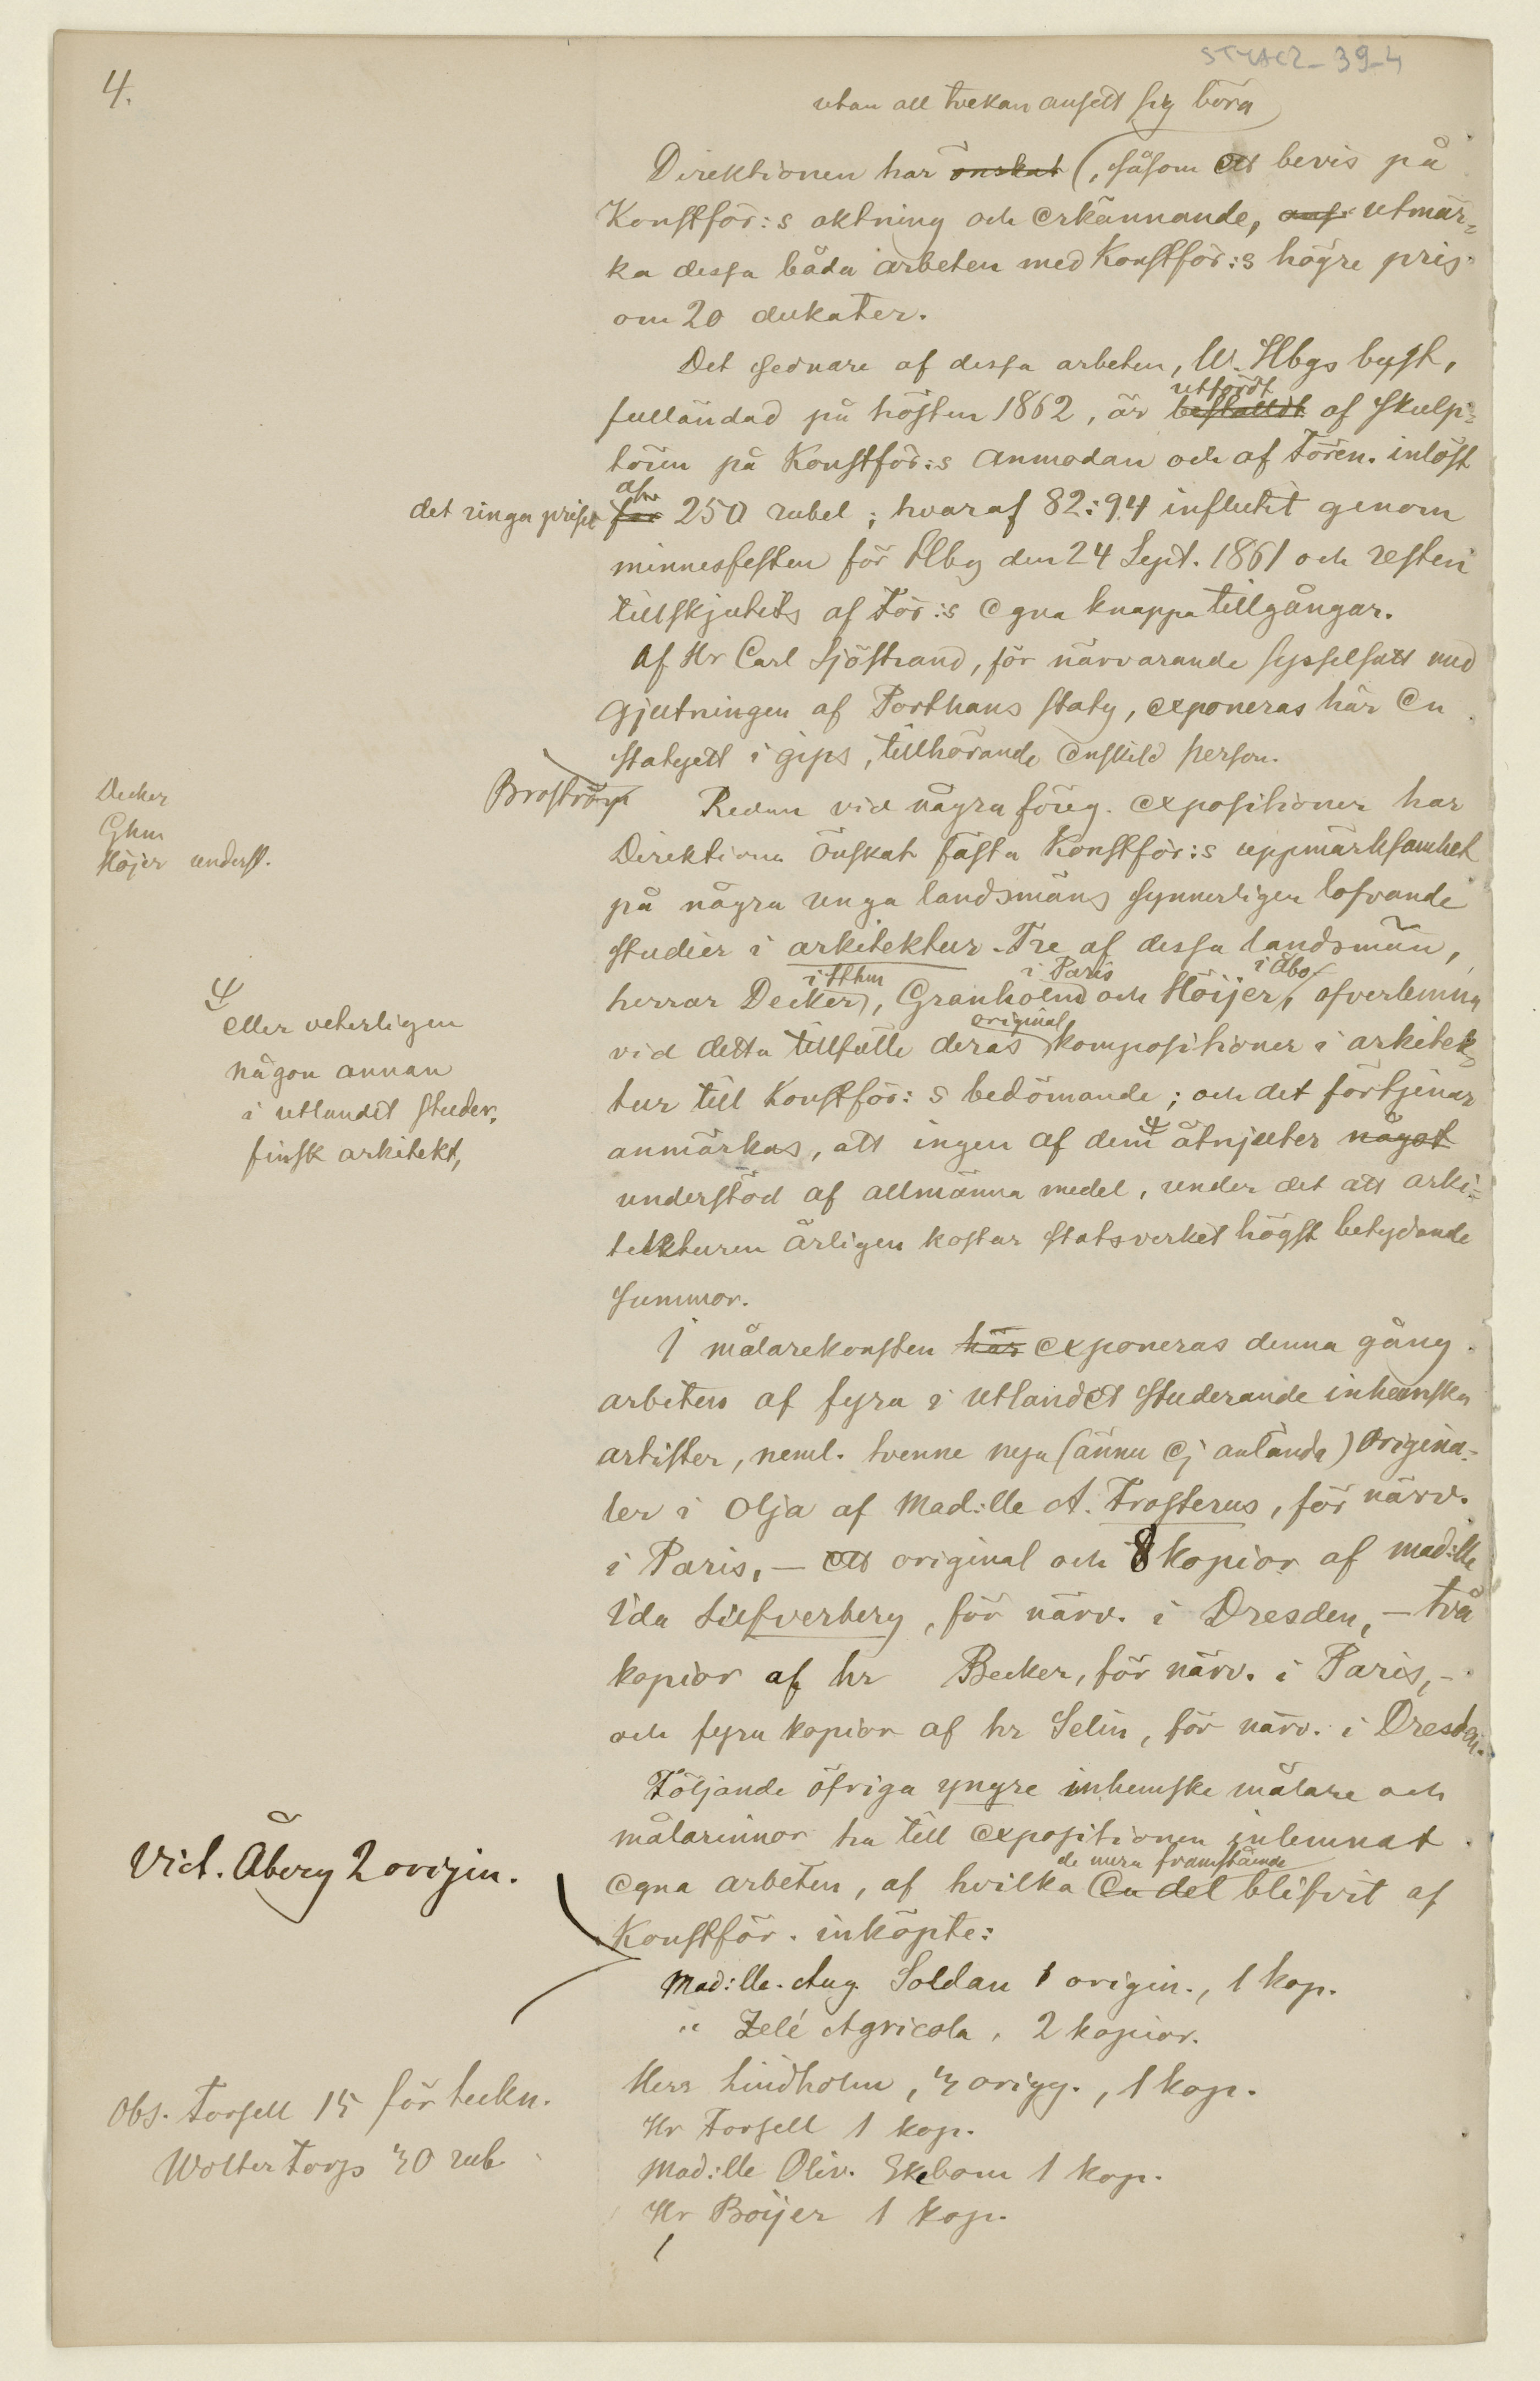 4.
STYACZ-39-4
utan all tvekan ansett sig böra
Direktionen har önskat (, såsom ett bevis på
Konstför:s aktning och erkännande, ans utmär-
ka dessa båda arbeten med Konstför:s högre pris
om 20 dukater.
Det sednare af dessa arbeten, W. Hbgs byst,
utfördt
fulländad på hösten 1862, är beställdt af skulp-
tören på Konstför:s anmodan och af Fören. inlöst
af
det ringa priset för 250 rubel; hvaraf 82:94 influtit genom
minnesfesten för Hbg den 24 Sept. 1861 och resten
tillskjutits af För:s egna knappa tillgångar.
Af Hr Carl Sjöstrand, för närvarande sysselsatt med
gjutningen af Porthans staty, exponeras här en
statyett i gips, tillhörande enskild person.
Broström
Decker
Ghm
Höjer underst.
Redan vid några föreg. expositioner har
Direktionen önskat fästa Konstför:s uppmärksamhet
på några unga landsmäns synnerligen lofvande
studier i arkitektur. Tre af dessa landsmän,
i Sthm i Paris i Åbo
herrar Decker, Granholm och Höijer, öfverlemna
original
vid detta tillfälle deras kompositioner i arkitek-
tur till Konstför:s bedömande; och det förtjenar
anmärkas, att ingen af dem åtnjuter något
eller veterligen
någon annan
i utlandet studer.
finsk arkitekt,
understöd af allmänna medel, under det att arki-
tekturen årligen kostar statsverket högst betydande
summor.
I målarekonsten här exponeras denna gång
arbeten af fyra i utlandet studerande inhemska
artister, neml. tvenne nya (ännu ej anlända) origina-
ler i olja af Mad:lle A. Frosterus, för närv.
i Paris, — ett original och 8 kopior af mad:lle
Ida Silfverberg, för närv. i Dresden, — två
kopior af hr Becker, för närv. i Paris, —
och fyra kopior af hr Selin, för närv. i Dresden.
Följande öfriga yngre inhemske målare och
målarinnor ha till expositionen inlemnat
de mera framstående
egna arbeten, af hvilka en del blifvit af
Konstför. inköpte:
Vict. Åberg 2 origin.
Mad:lle. Aug. Soldan 1 origin., 1 kop.
" Zelé Agricola, 2 kopior.
Herr Lindholm, 3 origg., 1 kop.
Hr Forsell 1 kop.
Mad:lle Oliv. Ekebom 1 kop.
Hr Boijer 1 kop.
Obs. Forsell 15 för teckn.
Wolter Fors 30 rub.